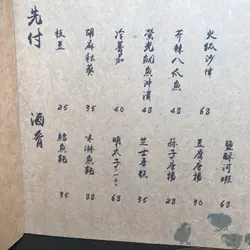 先付
枝豆
25
胡麻秋葵
35
冷蕃茄
40
螢光魷魚沖漬
48
芥辣八爪魚
48
沙律
68
酒肴
魚乾
35
味淋魚乾
38
明太子
68
芝士唐揚
35
蒜子唐揚
28
豆腐唐揚
30
鹽酥河蝦
68